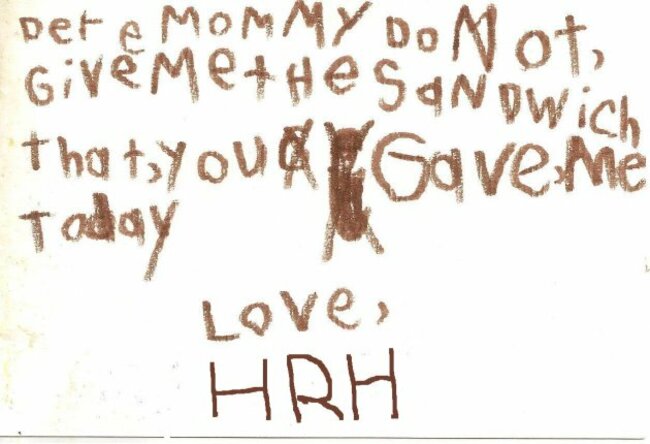 Dere MOMMY DO NOt,
GiVe Me tHe SaNDWich
that,you Gave,Me
Today
Love,
HRH